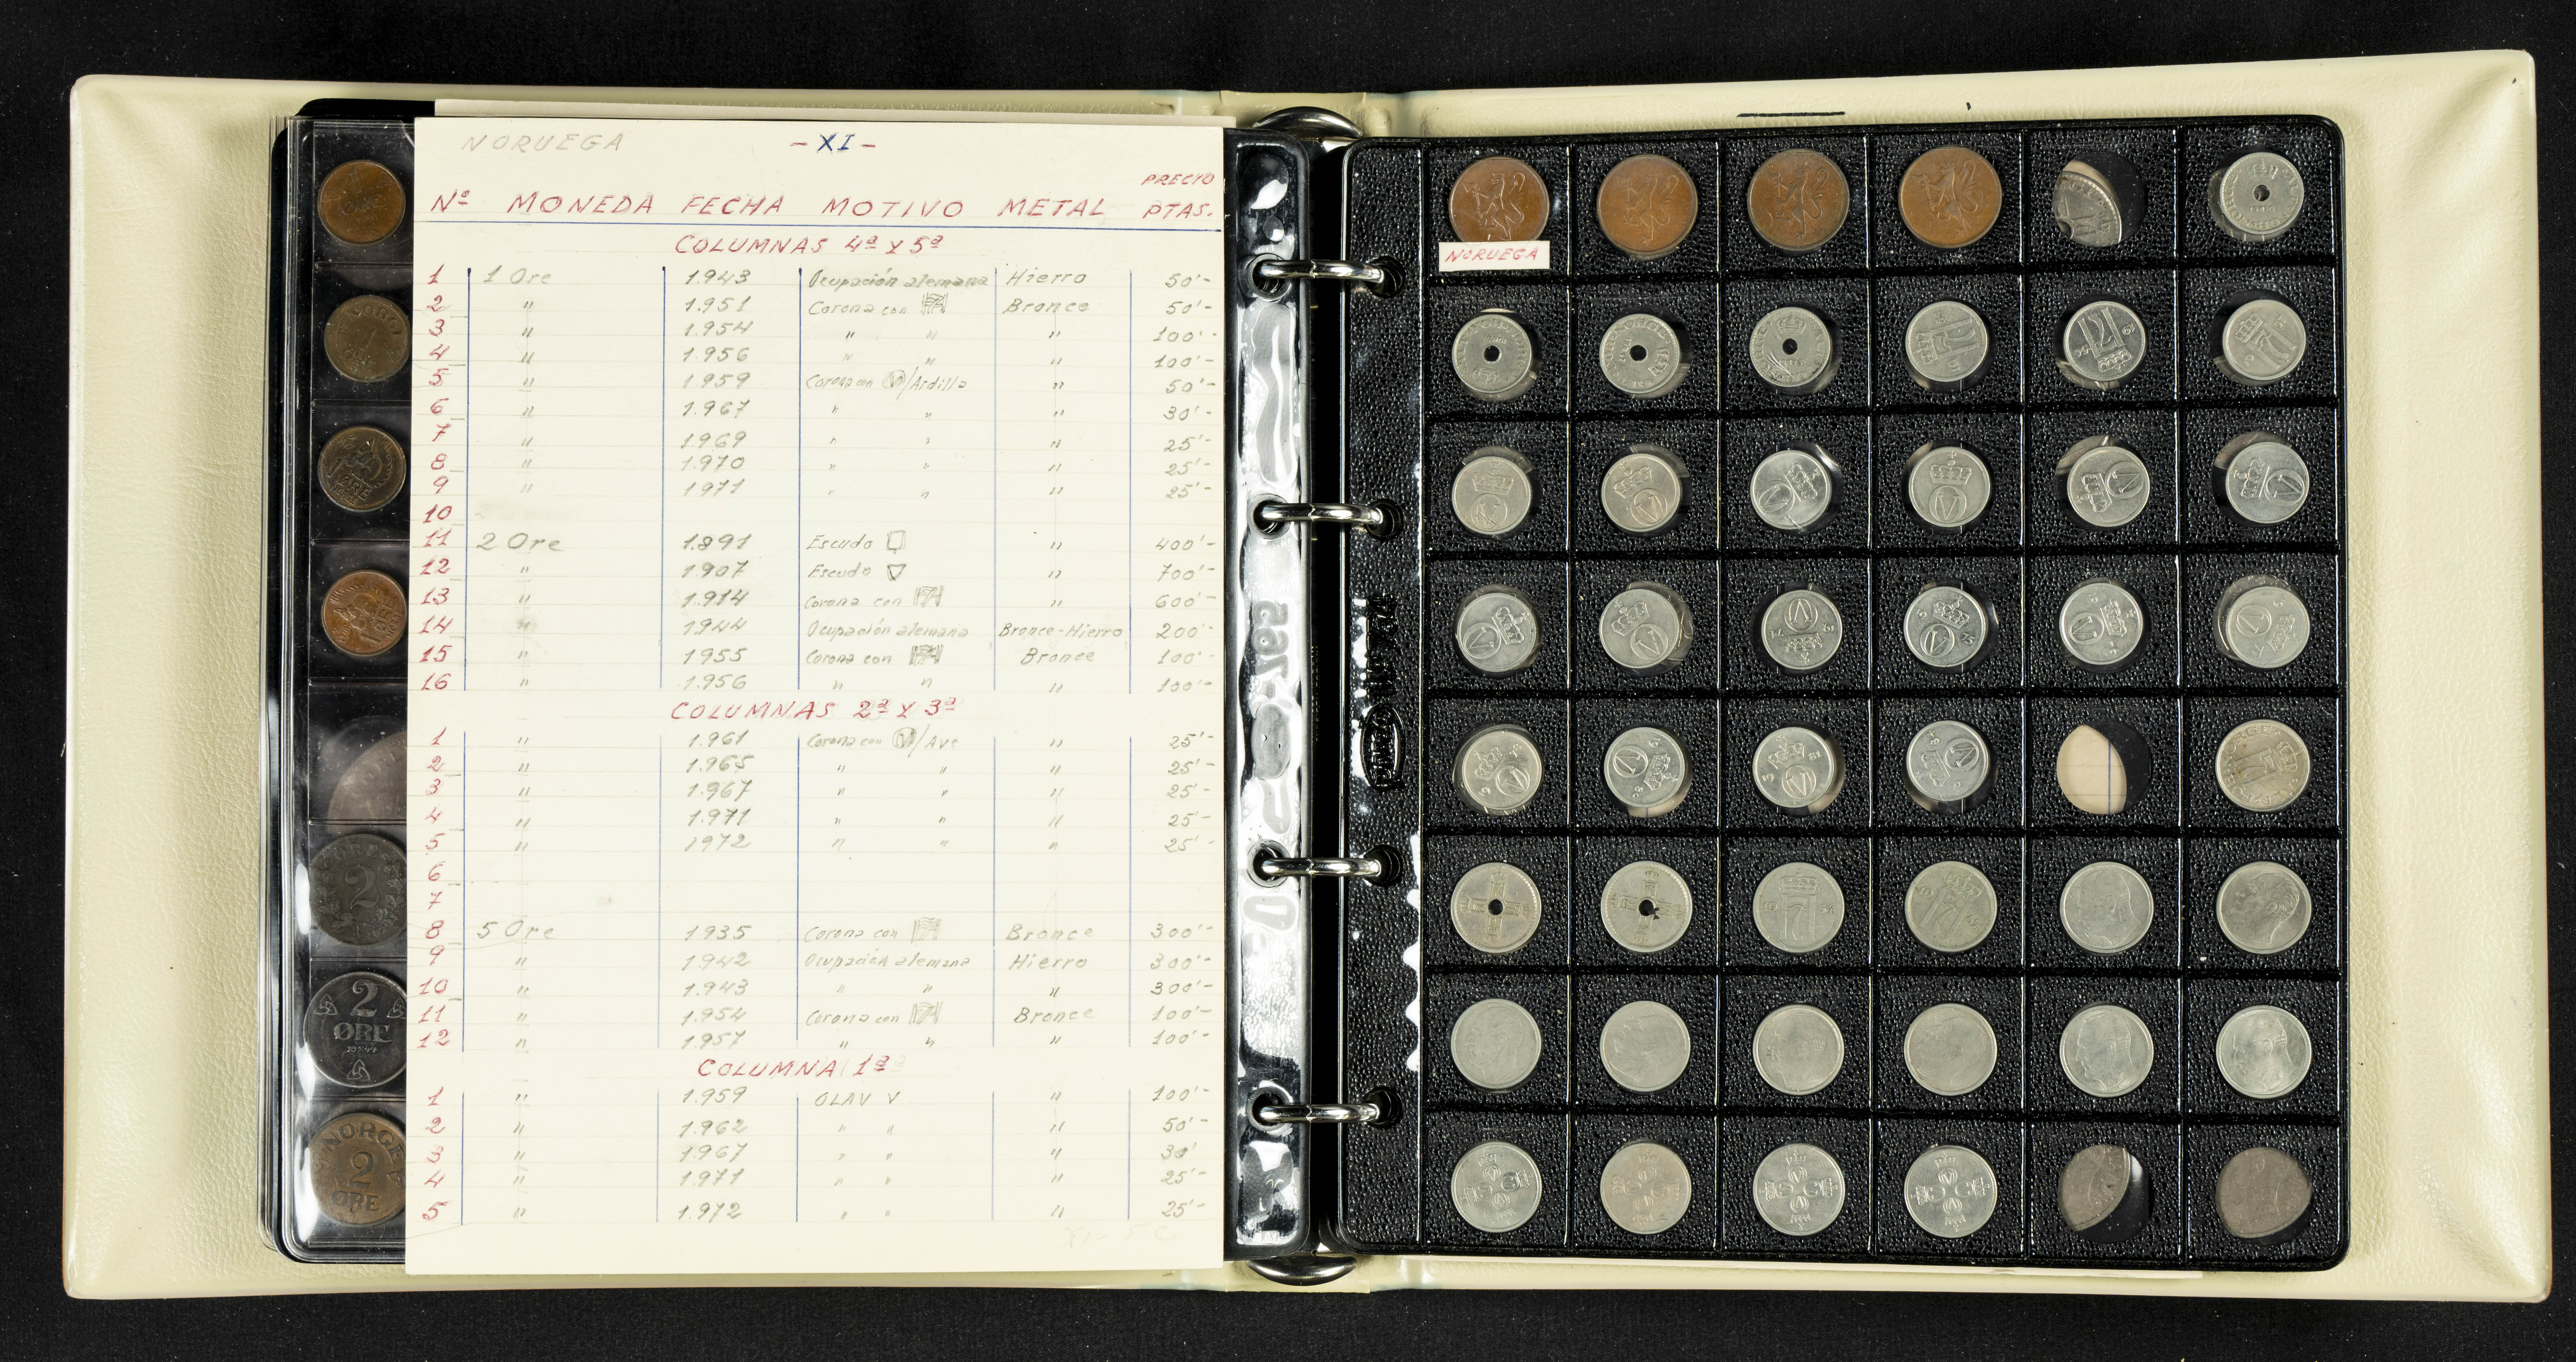 NORUEGA - XI -
Nº MONEDA FECHA MOTIVO METAL PRECIO PTAS.
COLUMNAS 4ª Y 5ª
1 1 Ore 1.943 Ocupación alemana Hierro 50'-
2 " 1.951 Corona con Bronce 50'-
3 " 1.954 " " " 100'-
4 " 1.956 " " " 100'-
5 " 1.959 Corona con V/Ardilla " 50'-
6 " 1.967 " " " 30'-
7 " 1.969 " " " 25'-
8 " 1.970 " " " 25'-
9 " 1.971 " " " 25'-
10
11 2 Ore 1.891 Escudo " 400'-
12 " 1.907 Escudo " 700'-
13 " 1.914 Corona con " 600'-
14 " 1.944 Ocupación alemana Bronce-Hierro 200'-
15 " 1955 Corona con Bronce 100'-
16 " 1.956 " " " 100'-
COLUMNAS 2ª Y 3ª
1 " 1.961 Corona con V/Ave " 25'-
2 " 1.965 " " " 25'-
3 " 1.967 " " " 25'-
4 " 1.971 " " " 25'-
5 " 1972 " " " 25'-
6
7
8 5 Ore 1935 Corona con Bronce 300'-
9 " 1.942 Ocupación alemana Hierro 300'-
10 " 1.943 " " " 300'-
11 " 1.954 Corona con Bronce 100'-
12 " 1.957 " " " 100'-
COLUMNA 1ª
1 " 1.959 OLAV V " 100'-
2 " 1.962 " " " 50'-
3 " 1.967 " " " 30'
4 " 1.971 " " " 25'-
5 " 1.972 " " " 25'-
2
2
ØRE
NORGE
2
ØRE
NORUEGA
pardo